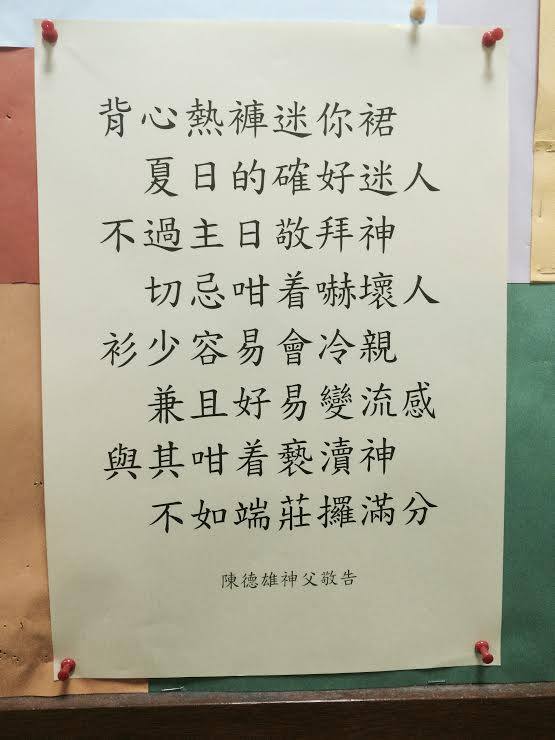 背心熱褲迷你裙
夏日的確好迷人
不過主日敬拜神
切忌咁着嚇壞人
衫少容易會冷親
兼且好易變流感
與其咁着褻瀆神
不如端莊攞滿分
陳德雄神父敬告